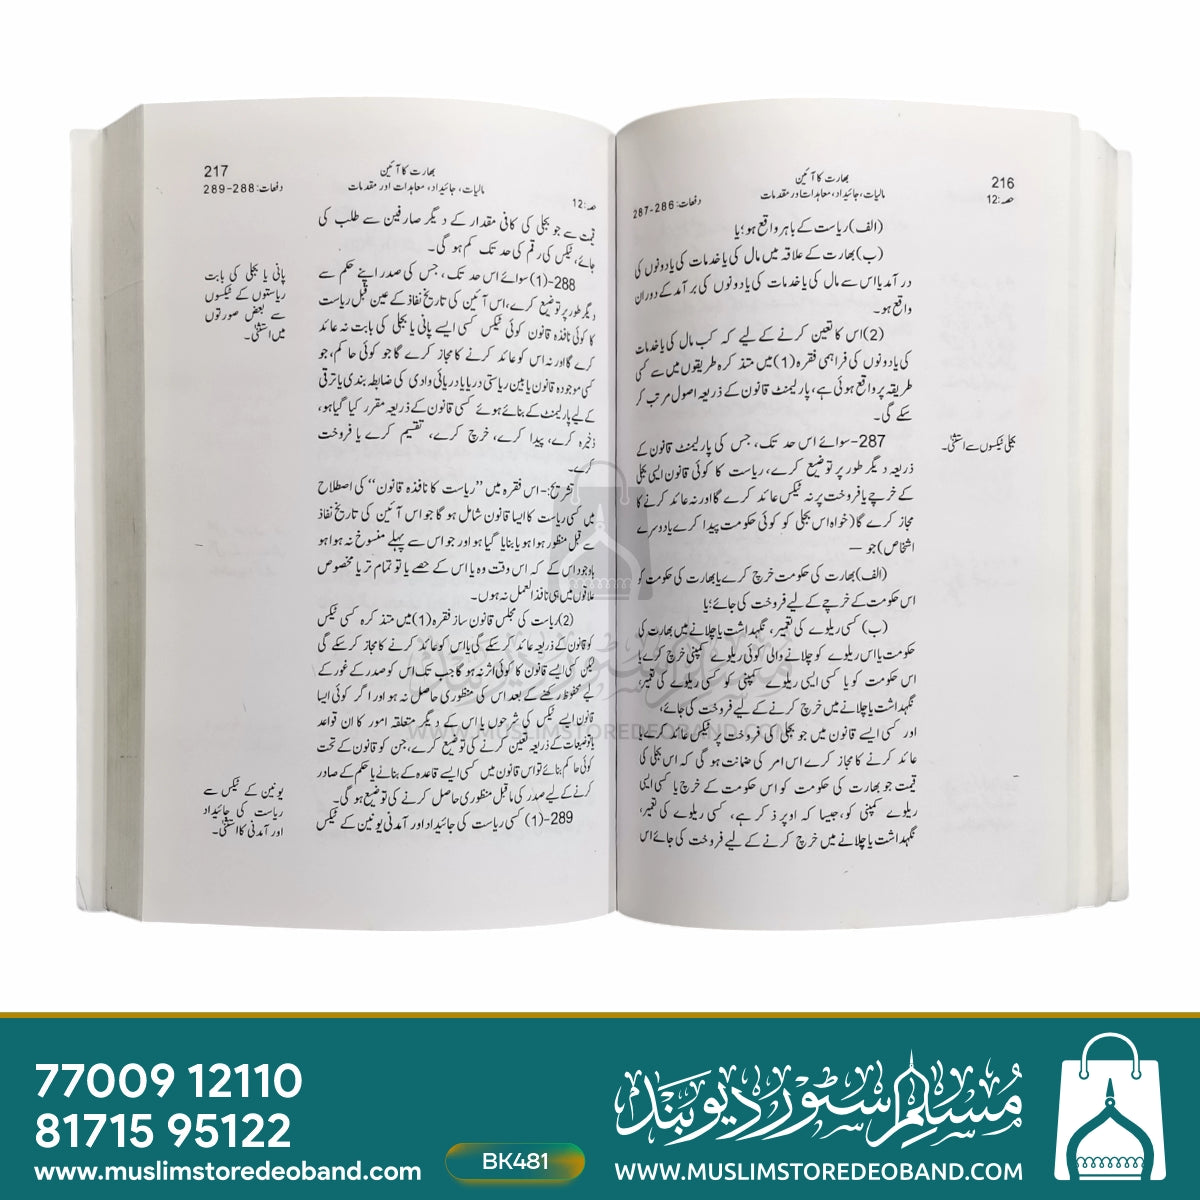 216
بھارت کا آئین
مالیات، جائیداد، معاہدات اور مقدمات
حصہ:12
دفعات:286-287
(الف) ریاست کے باہر واقع ہو؛ یا
(ب) بھارت کے علاقہ میں مال کی یا خدمات کی یا دونوں کی
در آمد یا اس سے مال کی یا خدمات کی یا دونوں کی برآمد کے دوران
واقع ہو۔
(2) اس کا تعین کرنے کے لیے کہ کب مال کی یا خدمات
کی یا دونوں کی فراہمی فقرہ (1) میں متذکرہ طریقوں میں سے کسی
طریقہ پر واقع ہوئی ہے، پارلیمنٹ قانون کے ذریعہ اصول مرتب کر
سکے گی۔
بجلی پر ٹیکسوں سے استثنیٰ۔
287-سوائے اس حد تک، جس کی پارلیمنٹ قانون کے
ذریعہ دیگر طور پر توضیع کرے، ریاست کا کوئی قانون ایسی بجلی
کے خرچے یا فروخت پر نہ ٹیکس عائد کرے گا اور نہ عائد کرنے کا
مجاز کرے گا (خواہ اس بجلی کو کوئی حکومت پیدا کرے یا دوسرے
اشخاص) جو —
(الف) بھارت کی حکومت خرچ کرے یا بھارت کی حکومت کو
اس حکومت کے خرچے کے لیے فروخت کی جائے؛ یا
(ب) کسی ریلوے کی تعمیر، نگہداشت یا چلانے میں بھارت کی
حکومت یا اس ریلوے کو چلانے والی کوئی ریلوے کمپنی خرچ کرے یا
اس حکومت کو یا کسی ایسی ریلوے کمپنی کو کسی ریلوے کی تعمیر،
نگہداشت یا چلانے میں خرچ کرنے کے لیے فروخت کی جائے،
اور کسی ایسے قانون میں جو بجلی کی فروخت پر ٹیکس عائد کرے یا
عائد کرنے کا مجاز کرے اس امر کی ضمانت ہو گی کہ اس بجلی کی
قیمت جو بھارت کی حکومت کو اس حکومت کے خرچ یا کسی ایسی
ریلوے کمپنی کو، جیسا کہ اوپر ذکر ہے، کسی ریلوے کی تعمیر،
نگہداشت یا چلانے میں خرچ کرنے کے لیے فروخت کی جائے اس
217
بھارت کا آئین
مالیات، جائیداد، معاہدات اور مقدمات
حصہ:12
دفعات:288-289
قیمت سے جو بجلی کی کافی مقدار کے دیگر صارفین سے طلب کی
جائے، ٹیکس کی رقم کی حد تک کم ہو گی۔
پانی یا بجلی کی بابت
ریاستوں کے ٹیکسوں
سے بعض صورتوں
میں استثنیٰ۔
288-(1) سوائے اس حد تک، جس کی صدر اپنے حکم سے
دیگر طور پر توضیع کرے، اس آئین کی تاریخ نفاذ کے عین قبل ریاست
کا کوئی نافذہ قانون کوئی ٹیکس کسی ایسے پانی یا بجلی کی بابت نہ عائد
کرے گا اور نہ اس کو عائد کرنے کا مجاز کرے گا جو کوئی حاکم، جو
کسی موجودہ قانون یا بین ریاستی دریا یا دریائی وادی کی ضابطہ بندی یا ترقی
کے لیے پارلیمنٹ کے بنائے ہوئے کسی قانون کے ذریعہ مقرر کیا گیا ہو،
ذخیرہ کرے، پیدا کرے، خرچ کرے، تقسیم کرے یا فروخت
کرے۔
تشریح:-اس فقرہ میں ’’ریاست کا نافذہ قانون‘‘ کی اصطلاح
میں کسی ریاست کا ایسا قانون شامل ہو گا جو اس آئین کی تاریخ نفاذ
سے قبل منظور ہوا ہو یا بنایا گیا ہو اور جو اس سے پہلے منسوخ نہ ہوا ہو
باوجود اس کے کہ اس وقت وہ یا اس کے حصے یا تو تمام تر یا مخصوص
علاقوں میں ہی نافذ العمل نہ ہوں۔
(2) ریاست کی مجلس قانون ساز فقرہ (1) میں متذکرہ کسی ٹیکس
کو قانون کے ذریعہ عائد کر سکے گی یا اس کو عائد کرنے کا مجاز کر سکے گی
لیکن کسی ایسے قانون کا کوئی اثر نہ ہو گا جب تک اس کو صدر کے غور کے
لیے محفوظ رکھنے کے بعد اس کی منظوری حاصل نہ ہو اور اگر کوئی ایسا
قانون ایسے ٹیکس کی شرحوں یا اس کے دیگر متعلقہ امور کا ان قواعد
یا توضیعات کے ذریعہ تعین کرنے کی توضیع کرے، جن کو قانون کے تحت
کوئی حاکم بنائے تو اس قانون میں کسی ایسے قاعدہ کے بنانے یا حکم کے صادر
کرنے کے لیے صدر کی ما قبل منظوری حاصل کرنے کی توضیع ہو گی۔
یونین کے ٹیکس سے
ریاست کی جائیداد
اور آمدنی کا استثنیٰ۔
289-(1) کسی ریاست کی جائیداد اور آمدنی یونین کے ٹیکس
مسلم سٹور دیوبند
WWW.MUSLIMSTOREDEOBAND.COM
77009 12110
81715 95122
www.muslimstoredeoband.com
BK481
مسلم سٹور دیوبند
WWW.MUSLIMSTOREDEOBAND.COM